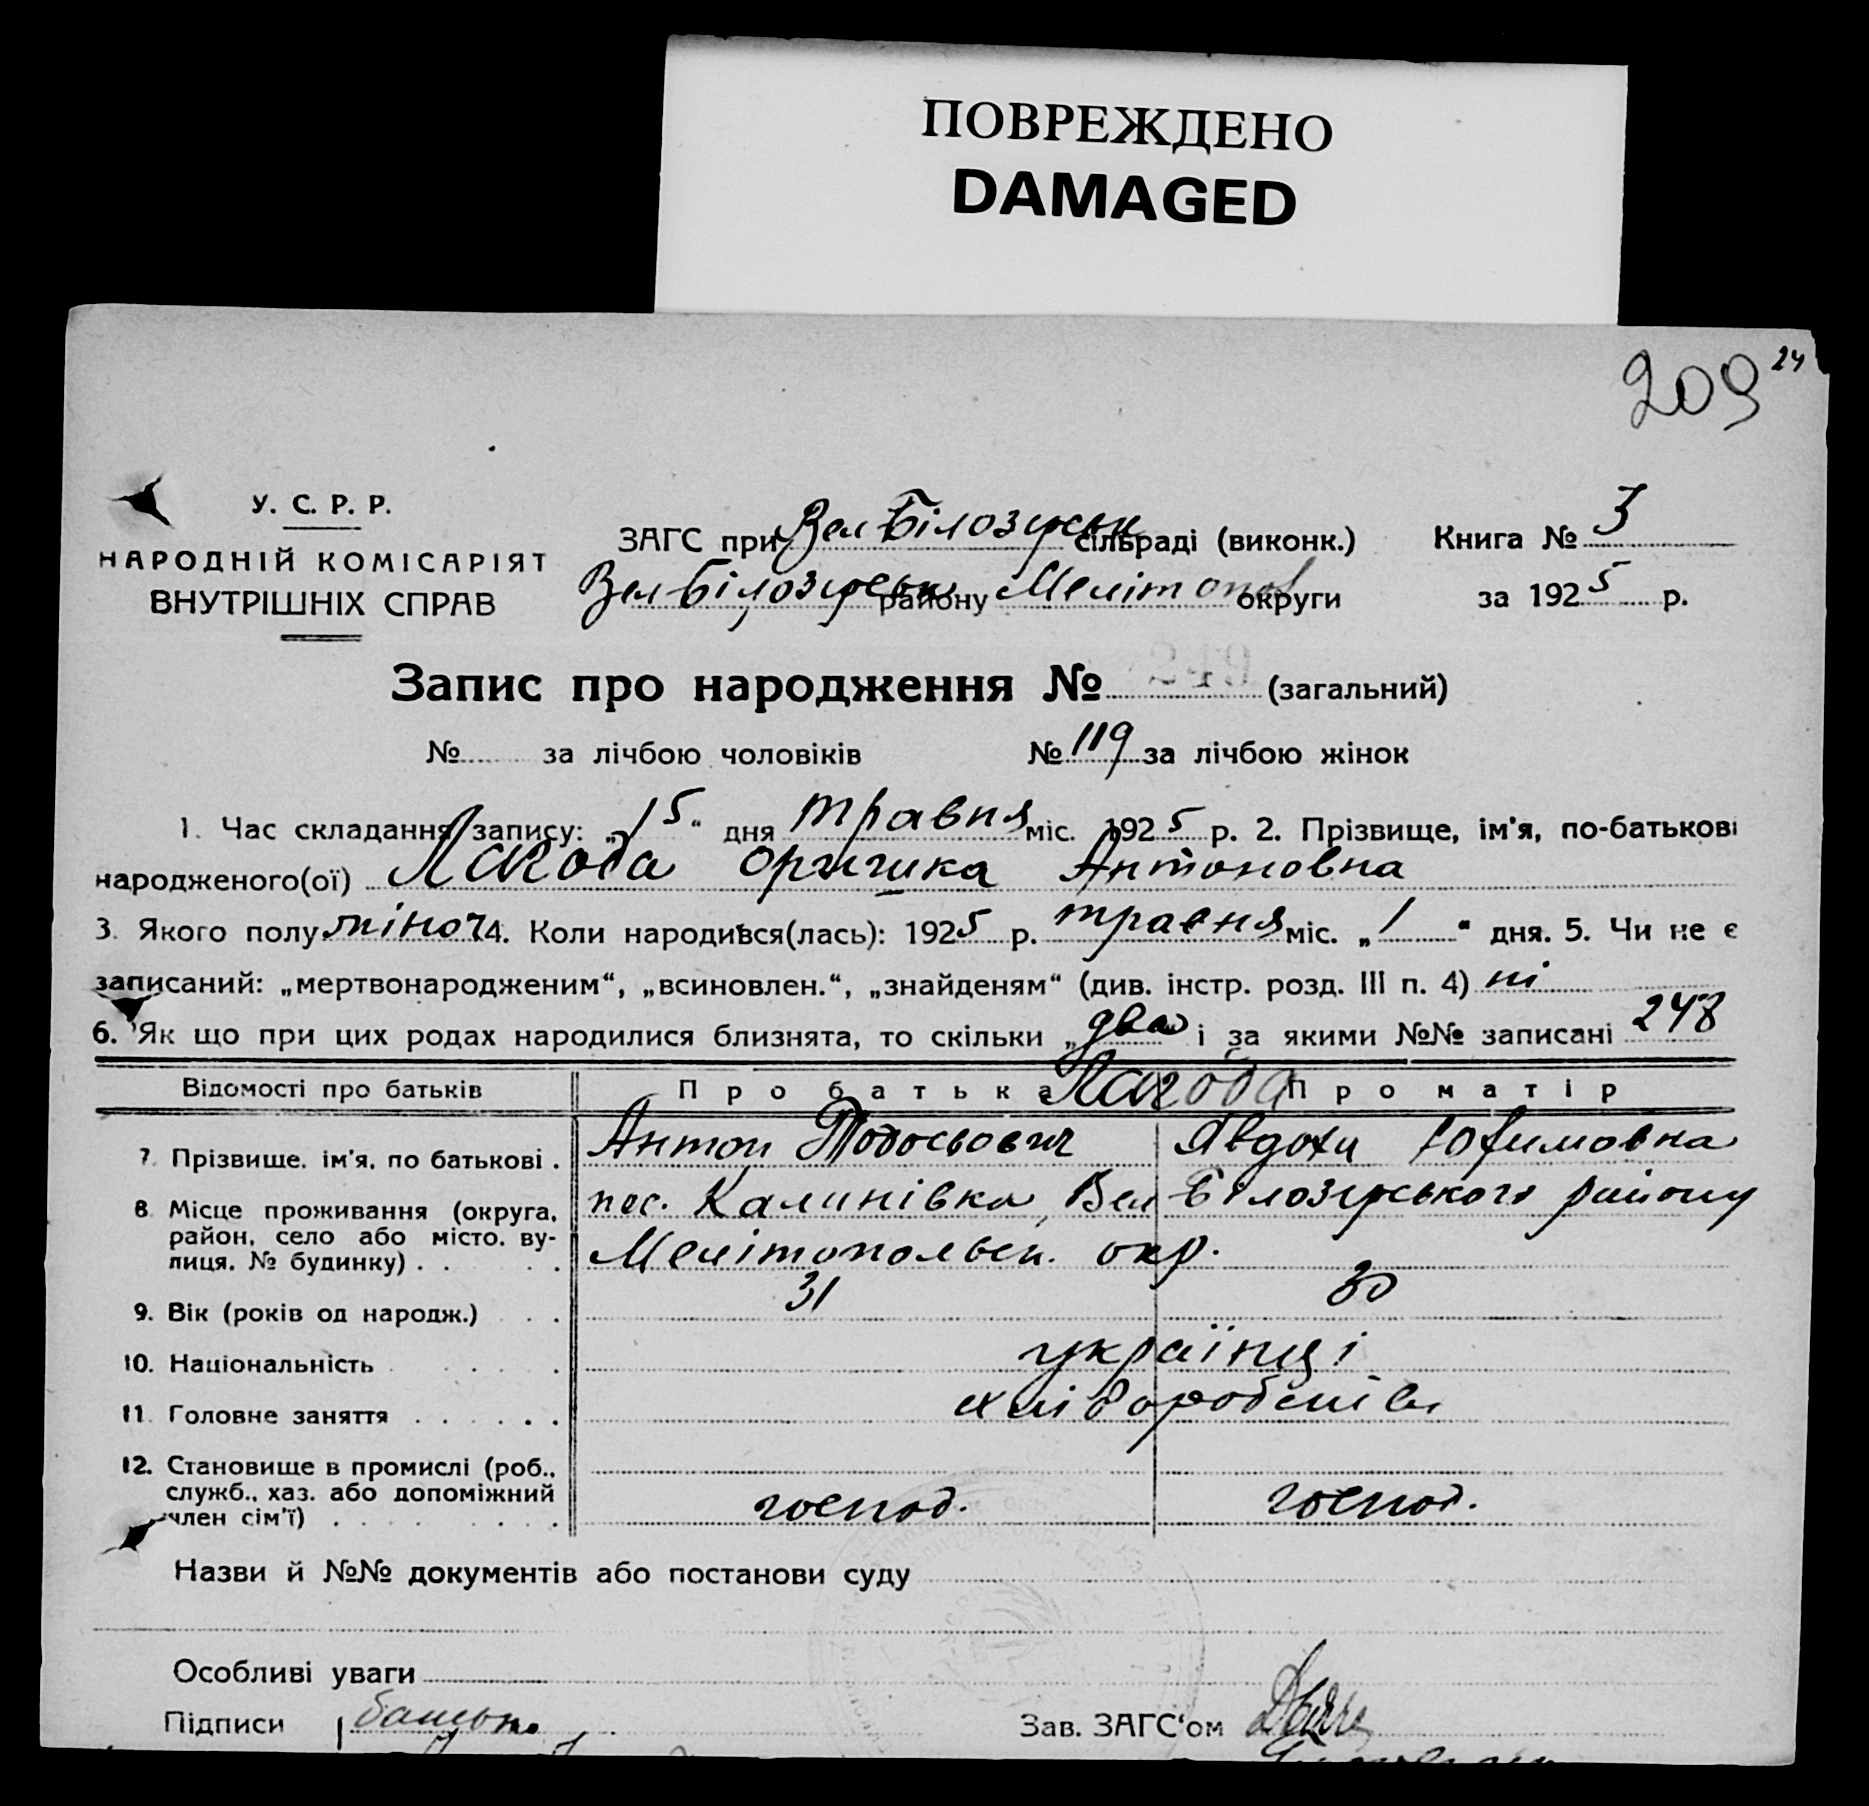 ПОВРЕЖДЕНО
DAMAGED
209 24
У. С. Р. Р.
НАРОДНІЙ КОМІСАРІЯТ
ВНУТРІШНІХ СПРАВ
ЗАГС при Вел Білозірськ сільраді (виконк.) Книга № 3
Вел Білозірськ району Мелітопол округи за 1925 р.
Запис про народження № (загальний)
№ за лічбою чоловіків № 119 за лічбою жінок
1. Час складання запису: „15“ дня травня міс. 1925 р. 2. Прізвище, ім'я, по-батькові
народженого(ої) Лагода Антоновна
3. Якого полу жіноч 4. Коли народився(лась): 1925 р. травня міс. „1“ дня. 5. Чи не є
записаний: „мертвонародженим“, „всиновлен.“, „знайденям“ (див. інстр. розд. III п. 4) ні
6. Як що при цих родах народилися близнята, то скільки „два“ і за якими №№ записані 248
Відомості про батьків Про батька Лагода Про матір
7. Прізвище, ім'я, по батькові . Антон Тодосьович Явдоха Юхимовна
8. Місце проживання (округа, район, село або місто, вулиця, № будинку) . . пос. Калинівка, Вел Білозірського району
Мелітопольськ. окр.
9. Вік (років од народж.) 31 30
10. Національність українці
11. Головне заняття хлібороби
12. Становище в промислі (роб.,
служб., хаз. або допоміжний
член сім'ї) господ. господ.
Назви й №№ документів або постанови суду
Особливі уваги
Підписи батько Зав. ЗАГС'ом